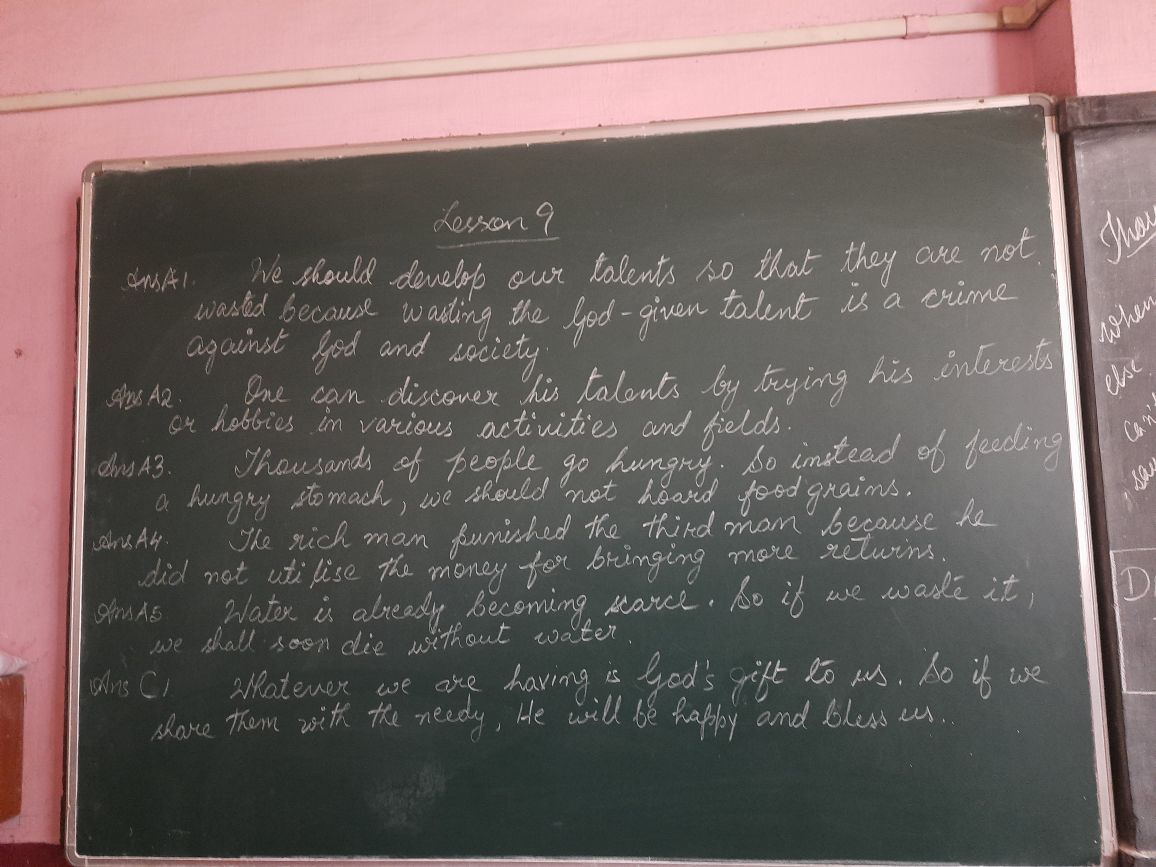 Lesson 9
Ans A1. We should develop our talents so that they are not
wasted because wasting the God-given talent is a crime
against God and society.
Ans A2. One can discover his talents by trying his interests
or hobbies in various activities and fields.
Ans A3. Thousands of people go hungry. So instead of feeding
a hungry stomach, we should not hoard foodgrains.
Ans A4. The rich man punished the third man because he
did not utilise the money for bringing more returns.
Ans A5 Water is already becoming scarce. So if we waste it,
we shall soon die without water.
Ans C1. Whatever we are having is God's gift to us. So if we
share them with the needy, He will be happy and bless us..
when
else
can't